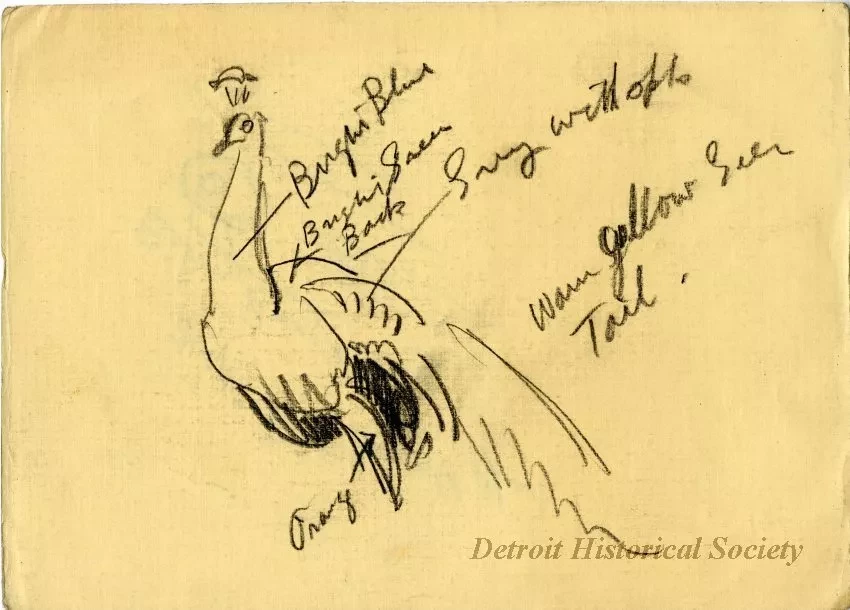 Bright Blue
Bright Green
Back
Grey with spts
Warm Yellow Green
Tail.
Orang
Detroit Historical Society